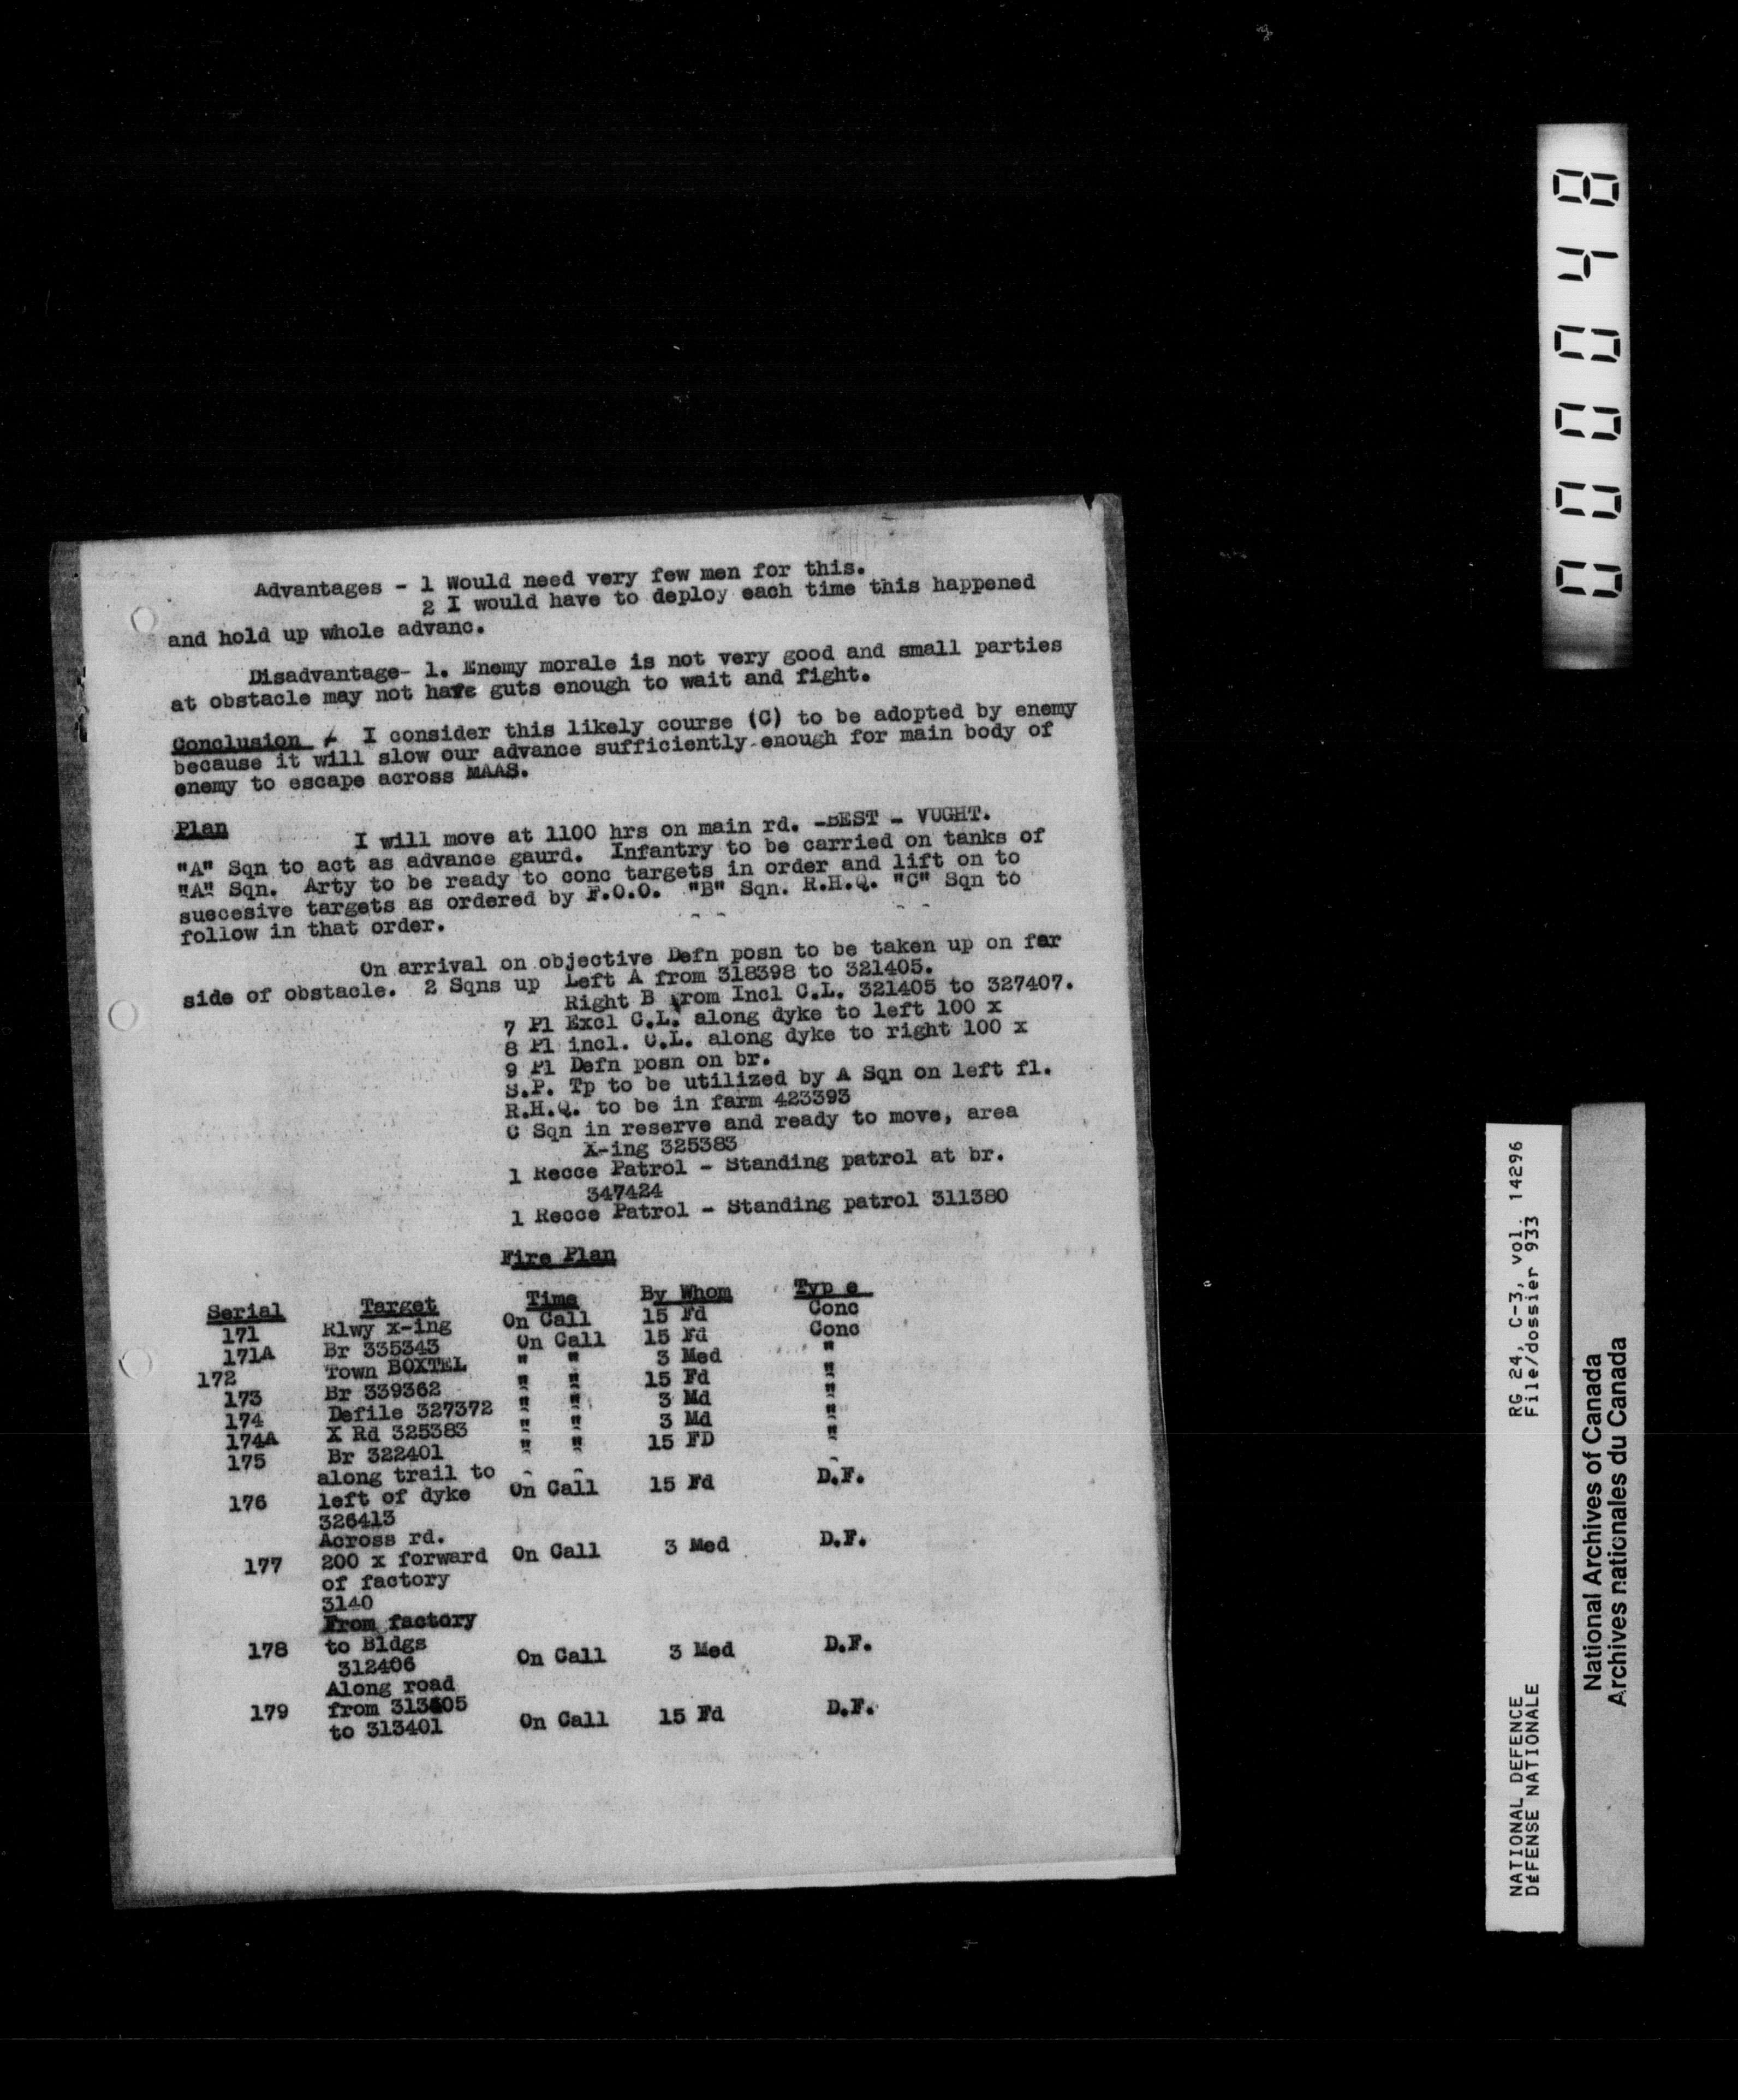 Advantages - 1 Would need very few men for this.
2 I would have to deploy each time this happened
and hold up whole advanc.
Disadvantage- 1. Enemy morale is not very good and small parties
at obstacle may not have guts enough to wait and fight.
Conclusion - I consider this likely course (C) to be adopted by enemy
because it will slow our advance sufficiently enough for main body of
enemy to escape across MAAS.
Plan
I will move at 1100 hrs on main rd. -BEST - VUGHT.
"A" Sqn to act as advance gaurd. Infantry to be carried on tanks of
"A" Sqn. Arty to be ready to conc targets in order and lift on to
suecesive targets as ordered by F.O.O. "B" Sqn. R.H.Q. "C" Sqn to
follow in that order.
On arrival on objective Defn posn to be taken up on far
side of obstacle. 2 Sqns up Left A from 318398 to 321405.
Right B from Incl C.L. 321405 to 327407.
7 Pl Excl C.L. along dyke to left 100 x
8 Pl incl. C.L. along dyke to right 100 x
9 Pl Defn posn on br.
S.P. Tp to be utilized by A Sqn on left fl.
R.H.Q. to be in farm 423393
C Sqn in reserve and ready to move, area
X-ing 325383
1 Recce Patrol - Standing patrol at br.
347424
1 Recce Patrol - Standing patrol 311380
Fire Plan
Serial Target Time By Whom Typ e
171 Rlwy x-ing On Call 15 Fd Conc
171A Br 335343 On Call 15 Fd Conc
172 Town BOXTEL " " 3 Med "
173 Br 339362 " " 15 Fd "
174 Defile 327372 " " 3 Md "
174A X Rd 325383 " " 3 Md "
175 Br 322401 " " 15 FD "
along trail to
176 left of dyke On Call 15 Fd D.F.
326413
Across rd.
177 200 x forward On Call 3 Med D.F.
of factory
3140
From factory
178 to Bldgs On Call 3 Med D.F.
312406
Along road
179 from 313405 On Call 15 Fd D.F.
to 313401
000048
RG 24, C-3, vol. 14296
File/dossier 933
NATIONAL DEFENCE
DÉFENSE NATIONALE
National Archives of Canada
Archives nationales du Canada